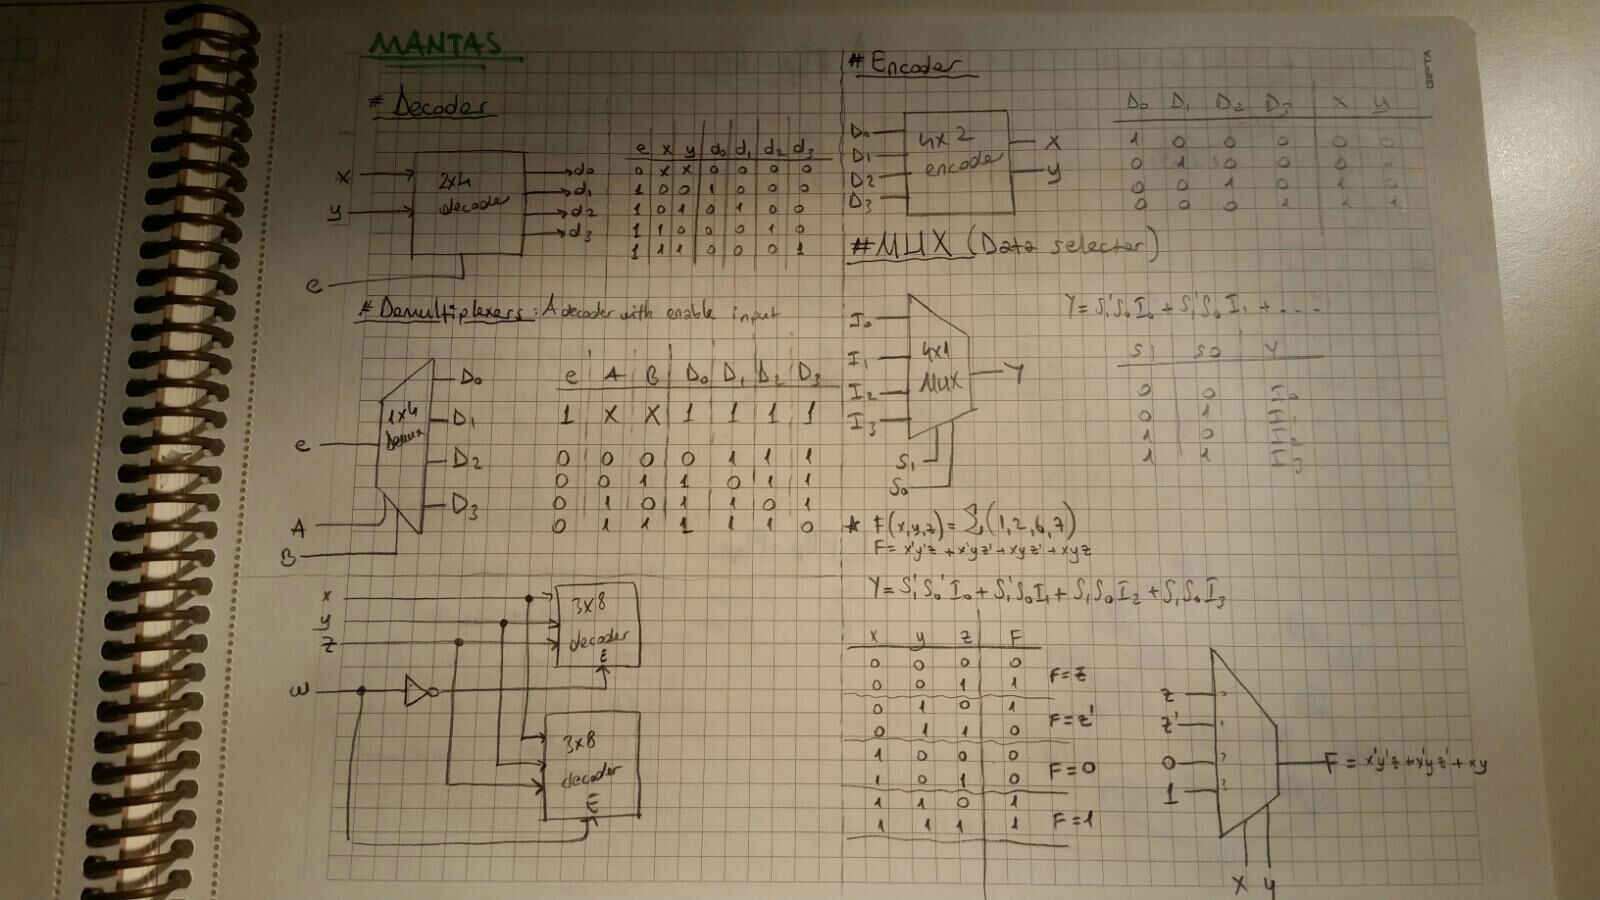 MANTAS
# Decoder
x
y
e
2x4
decoder
d0
d1
d2
d3
e x y d0 d1 d2 d3
0 x x 0 0 0 0
1 0 0 1 0 0 0
1 0 1 0 1 0 0
1 1 0 0 0 1 0
1 1 1 0 0 0 1
# Demultiplexers: A decoder with enable input
e
A
B
1x4
Demux
D0
D1
D2
D3
e A B D0 D1 D2 D3
1 X X 1 1 1 1
0 0 0 0 1 1 1
0 0 1 1 0 1 1
0 1 0 1 1 0 1
0 1 1 1 1 1 0
x
y
z
w
3x8
decoder
E
3x8
decoder
E
# Encoder
D0
D1
D2
D3
4x2
encoder
X
Y
D0 D1 D2 D3 X Y
1 0 0 0 0 0
0 1 0 0 0
0 0 1 0 1 0
0 0 0 1 1 1
# MUX (Data selector)
I0
I1
I2
I3
4x1
MUX
Y
S1
S0
Y = S1'S0'I0 + S1'S0I1 + ....
S1 S0 Y
0 0 I0
0 1 I1
1 0 I2
1 1 I3
* F(x,y,z) = Σ(1,2,6,7)
F = x'y'z + x'yz' + xyz' + xyz
Y = S1'S0'I0 + S1'S0I1 + S1S0'I2 + S1S0I3
x y z F
0 0 0 0
0 0 1 1
F = z
0 1 0 1
0 1 1 0
F = z'
1 0 0 0
1 0 1 0
F = 0
1 1 0 1
1 1 1 1
F = 1
z
z'
0
1
F = x'y'z + x'yz' + xy
X Y